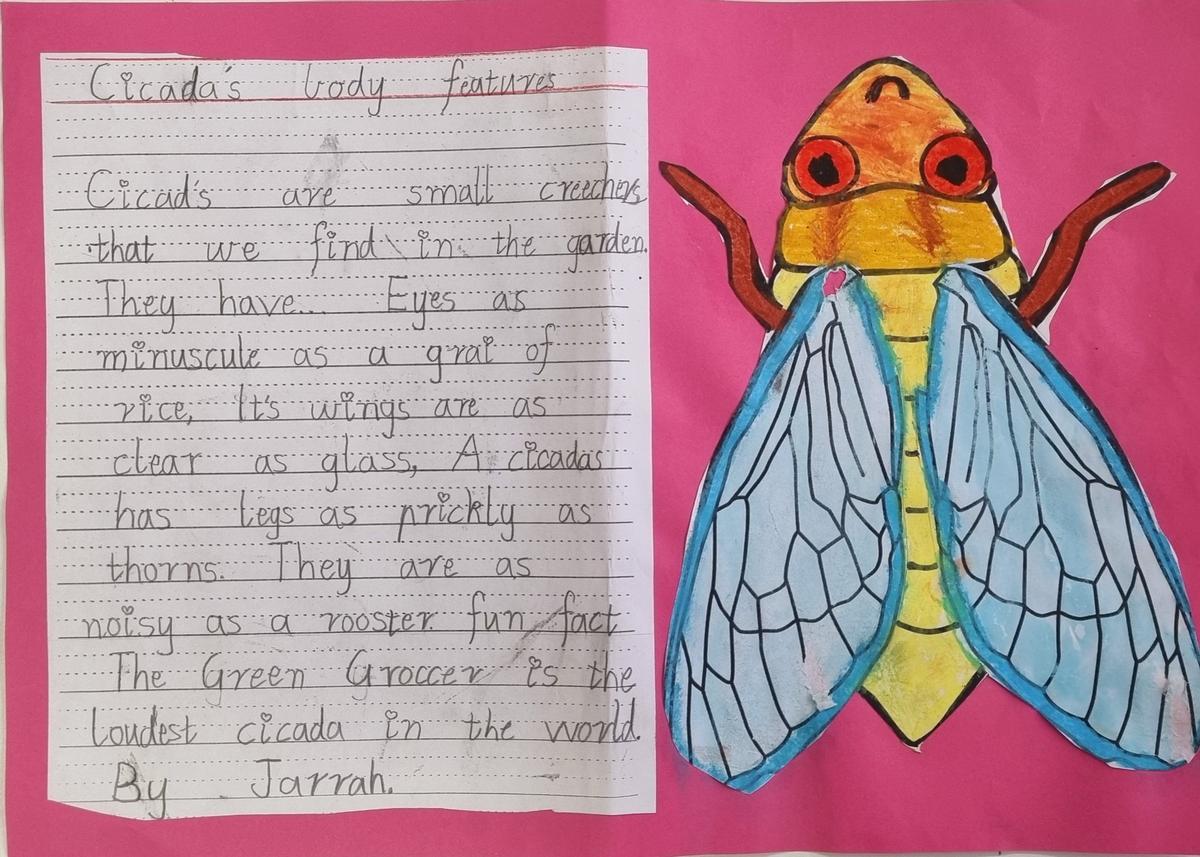 Cicada's body features
Cicad's are small creechers
that we find in the garden.
They have... Eyes as
minuscule as a grai of
rice, It's wings are as
clear as glass, A cicadas
has legs as prickly as
thorns. They are as
noisy as a rooster fun fact
The Green Groccer is the
loudest cicada in the world.
By Jarrah.